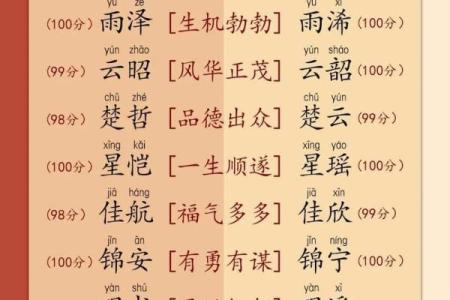 yǔ zé yǔ xī
(100分) 雨泽 [生机勃勃] 雨浠 (100分)
yún zhāo yún sháo
(99分) 云昭 [风华正茂] 云韶 (100分)
chǔ zhé chǔ yún
(98分) 楚哲 [品德出众] 楚云 (99分)
xīng kǎi xīng yáo
(100分) 星恺 [一生顺遂] 星瑶 (100分)
jiā háng jiā xīn
(98分) 佳航 [福气多多] 佳欣 (99分)
jǐn ān jǐn níng
(100分) 锦安 [有勇有谋] 锦宁 (100分)
yàn shū yàn xī